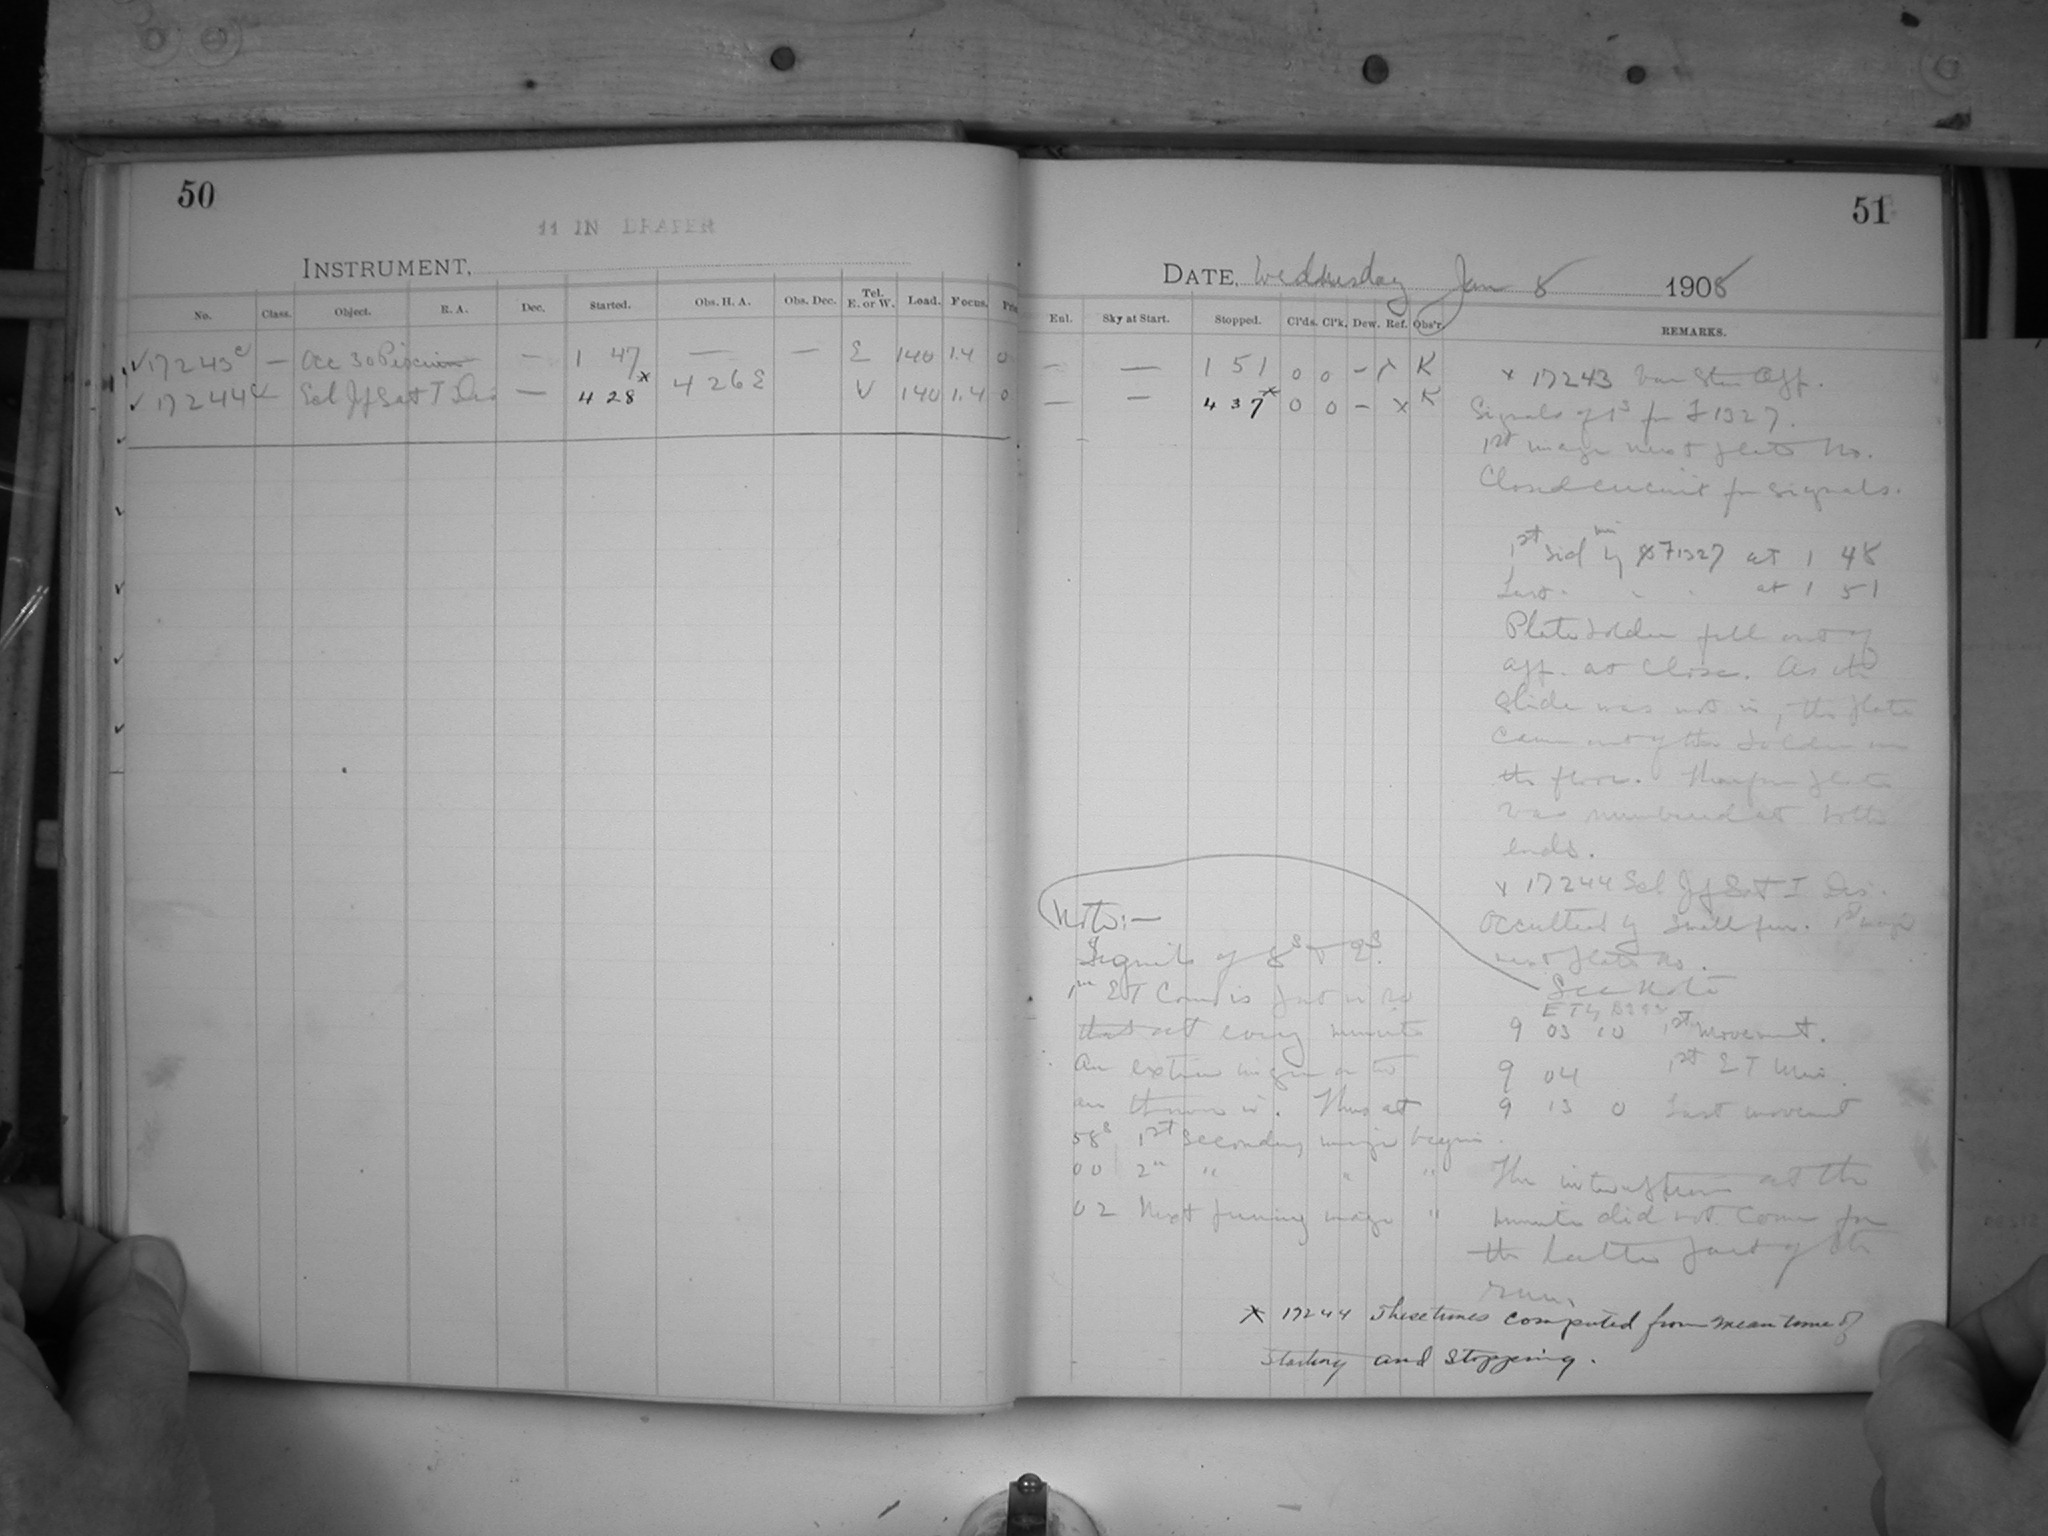 50
11 IN DRAPER
INSTRUMENT,
No. Class. Object. R. A. Dec. Started. Obs. H. A. Obs. Dec. Tel. E. or W. Load. Focus.
✓ 17243 c — Occ 30 Piscium — 1 47 — — E 140 1.4 0
✓ 17244 c Ecl J of Sat I Dis — 4 28 x 4 26 E W 140 1.4 0
51
DATE, Wednesday Jan 8 1908
Ext. Sky at Start. Stopped. Cl'ds. Cl'k. Dew. Ref. Obs'r. REMARKS.
— — 1 51 0 0 - x K
— — 4 37 x 0 0 - x K
x 17243 Van Ster App.
Signals of 1s for F 1327.
1st image next plate No.
Closed circuit for signals.
1st sid min by F1327 at 1 48
Last " " at 1 51
Plate holder fell out of
app. at close. As the
slide was not in, the plate
came out of the holder on
the floor. Therefore plate
was numbered at both
ends.
x 17244 Ecl J of Sat I Dis.
Occulted by small 1st image
next plate no.
See Note
E T by
9 03 10 1st movement.
9 04 1st E T Min.
9 13 0 Last movement
The interruption at the
minute did not come for
the latter part of the
run.
Note:—
Signals of 8s & 2s.
E T Com is put in so
that at every minute
an extra image or two
are thrown in. Thus at
58s 1st secondary image begins.
00 2" " " "
02 Next primary image "
x 17244 These times computed from mean time of
starting and stopping.